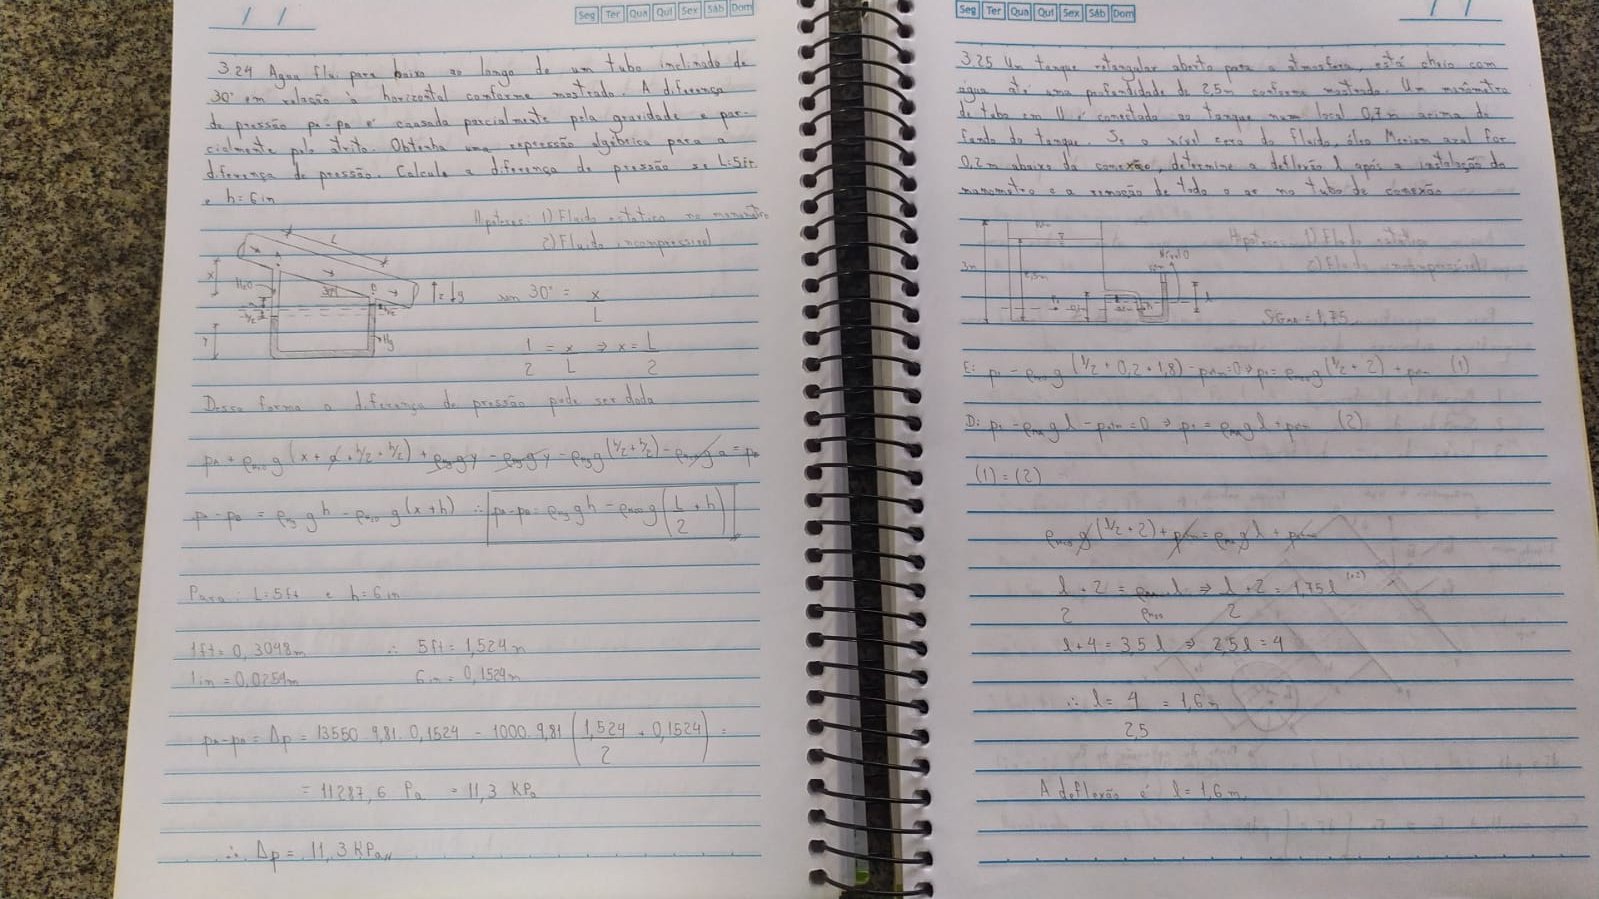 Seg Ter Qua Qui Sex Sáb Dom
3.24 Água flui para baixo ao longo de um tubo inclinado de
30° em relação à horizontal conforme mostrado. A diferença
de pressão pA-pB é causada parcialmente pela gravidade e par-
cialmente pelo atrito. Obtenha uma expressão algébrica para a
diferença de pressão. Calcule a diferença de pressão se L=5ft
e h=6in
Hipóteses: 1) Fluido estático no manômetro
2) Fluido incompressível
L
x
H₂O
30°
h/2
Hg
g
sen 30° = x/L
1/2 = x/L ⇒ x = L/2
Dessa forma a diferença de pressão pode ser dada
pA + ρH₂O g (x + a + h/2 + h/2) + ρHg g y - ρHg g y - ρHg g (h/2 + h/2) - ρH₂O g a = pB
pA - pB = ρHg g h - ρH₂O g (x+h) ∴ pA-pB = ρHg g h - ρH₂O g (L/2 + h)
Para: L=5ft e h=6in
1ft = 0,3048m ∴ 5ft = 1,524m
1in = 0,0254m 6in = 0,1524m
pA-pB = Δp = 13550 . 9,81 . 0,1524 - 1000 . 9,81 (1,524/2 + 0,1524) =
= 11287,6 Pa = 11,3 KPa
∴ Δp = 11,3 KPa
Seg Ter Qua Qui Sex Sáb Dom
3.25 Um tanque retangular aberto para a atmosfera, está cheio com
água até uma profundidade de 2,5m conforme mostrado. Um manômetro
de tubo em U é conectado ao tanque num local 0,7m acima do
fundo do tanque. Se o nível zero do fluido, óleo Meriam azul for
0,2m abaixo da conexão, determine a deflexão l após a instalação do
manômetro e a remoção de todo o ar no tubo de conexão
Hipóteses: 1) Fluido estático
2) Fluido incompressível
3m
2,5m
Nível 0
l
SG = 1,75
E: p1 - ρH₂O g (l/2 + 0,2 + 1,8) - patm = 0 ⇒ p1 = ρH₂O g (l/2 + 2) + patm (1)
D: p1 - ρMA g l - patm = 0 ⇒ p1 = ρMA g l + patm (2)
(1) = (2)
ρH₂O g (l/2 + 2) + patm = ρMA g l + patm
l/2 + 2 = ρMA/ρH₂O l ⇒ l/2 + 2 = 1,75 l (×2)
l + 4 = 3,5 l ⇒ 2,5 l = 4
∴ l = 4/2,5 = 1,6 m
A deflexão é l = 1,6 m